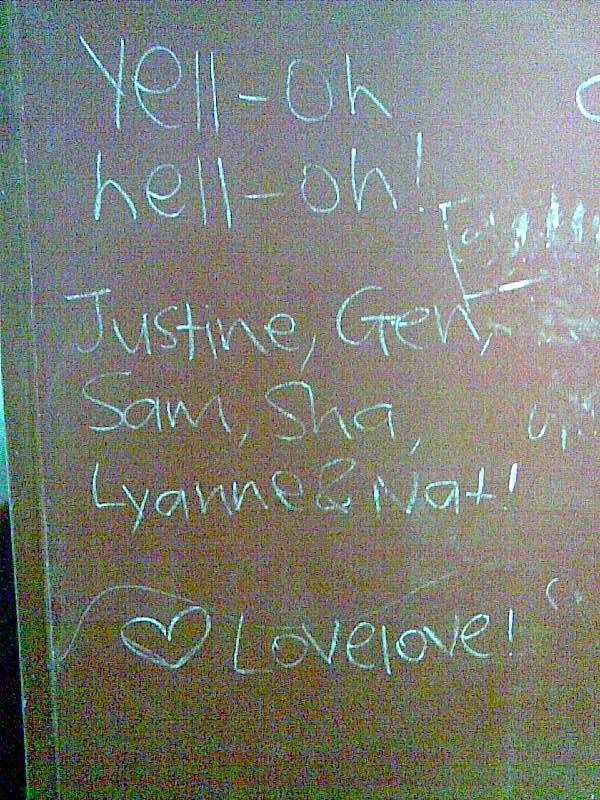 Yell-oh
hell-oh!
Justine, Gen,
Sam, Sha,
Lyanne & Nat!
♡ Lovelove!